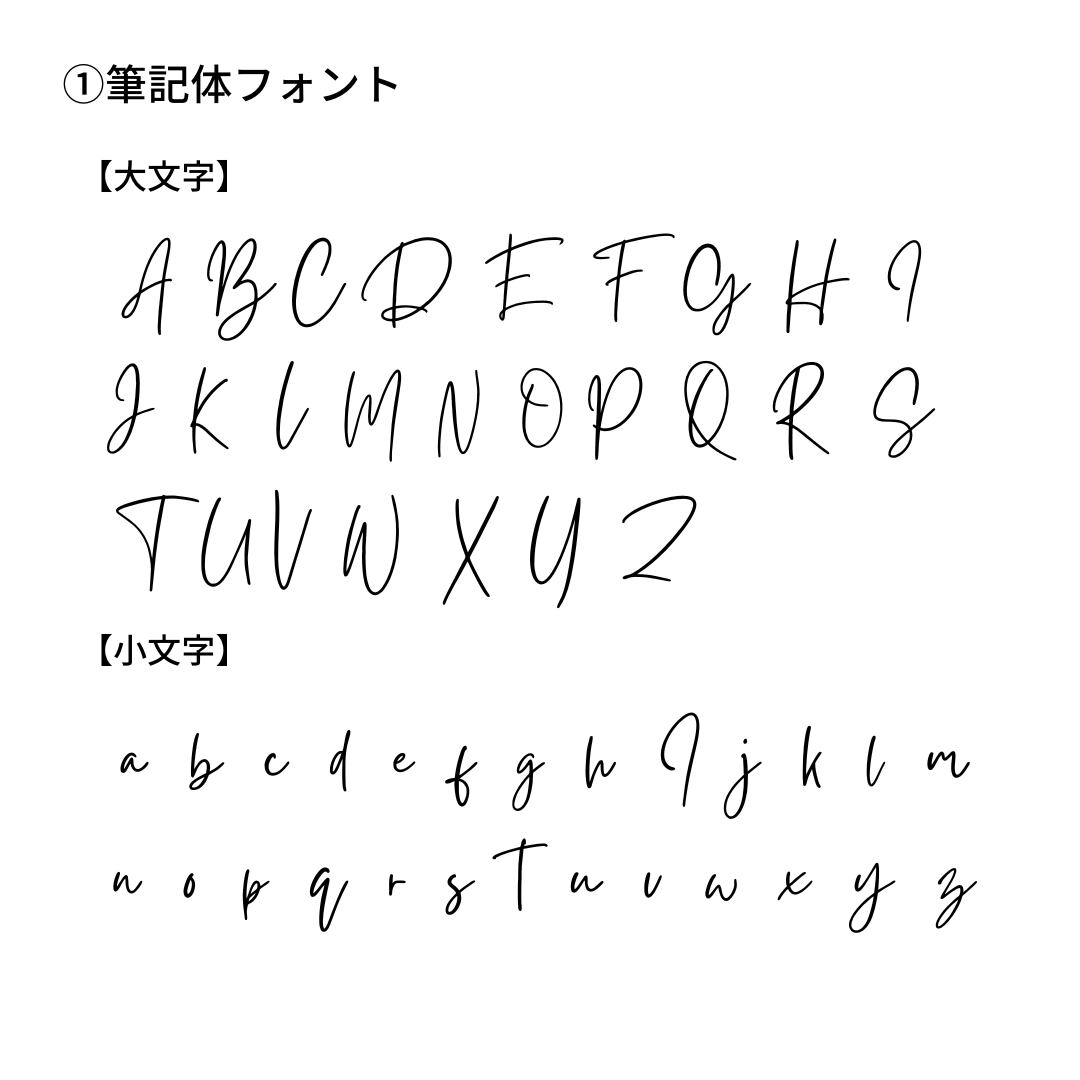 ①筆記体フォント
【大文字】
A B C D E F G H I
J K L M N O P Q R S
T U V W X Y Z
【小文字】
a b c d e f g h I j k l m
n o p q r s T u v w x y z